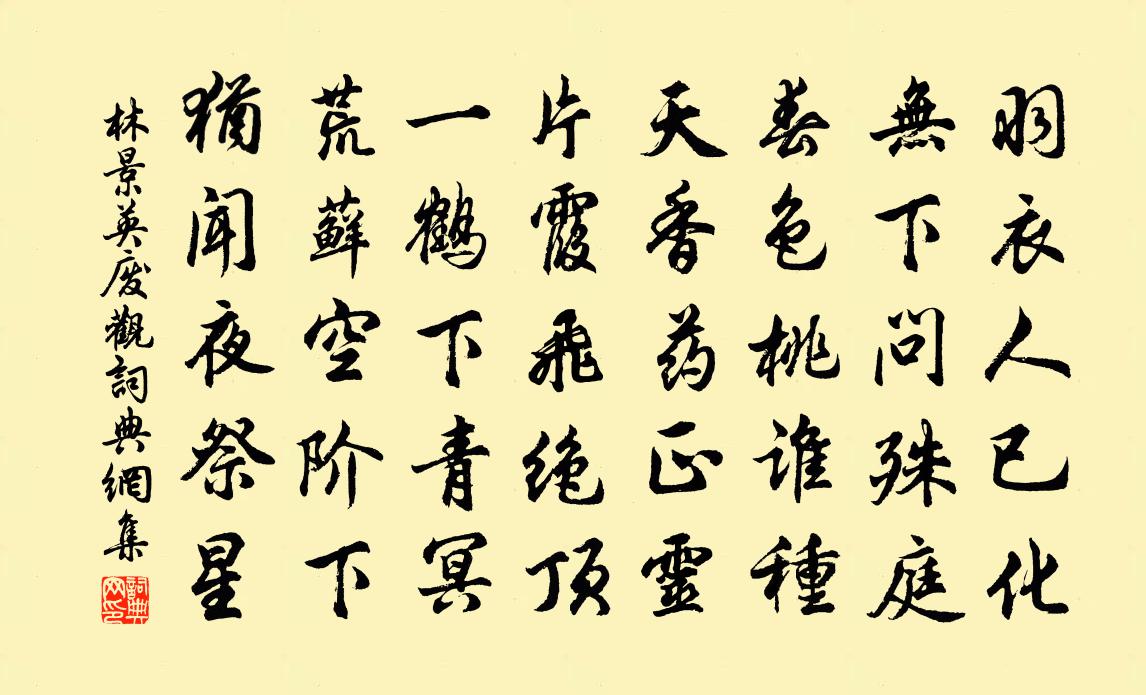 羽衣人已化
無下问殊庭
春色桃誰種
天香药正靈
片霞飛绝顶
一鶴下青冥
荒蘚空阶下
猶闻夜祭星
林景英废觀詞典網集
詞典
网印